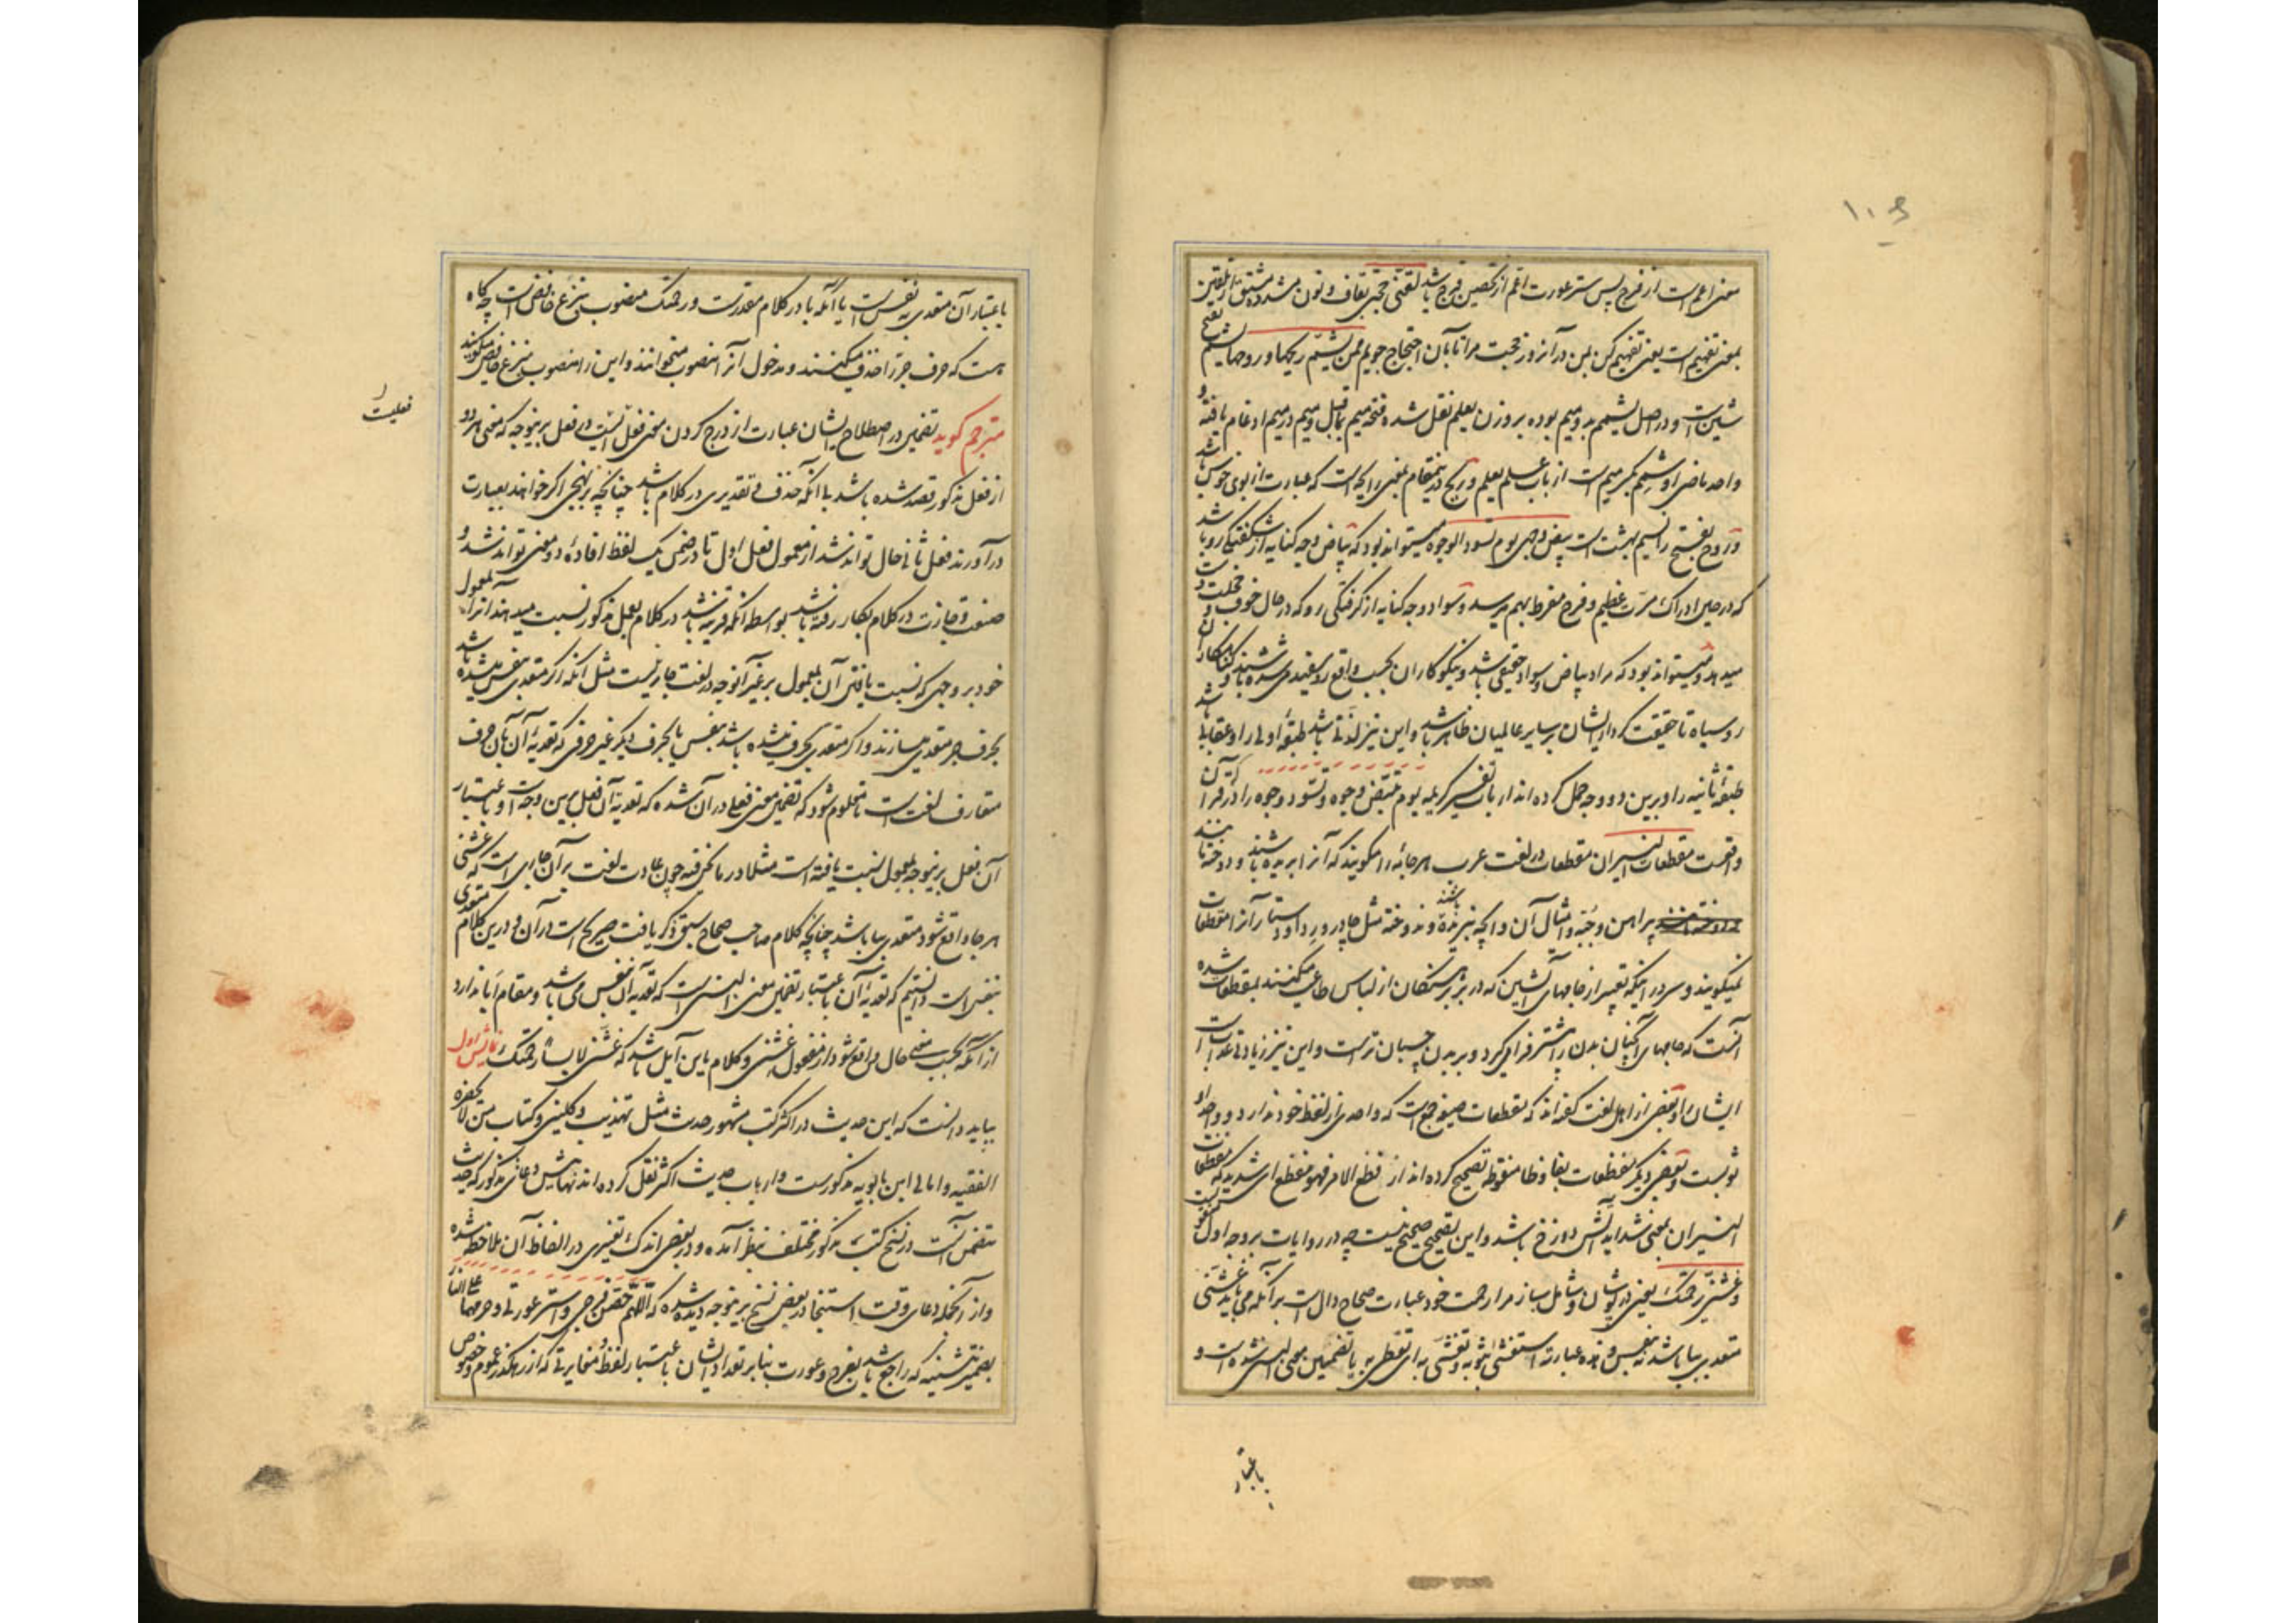 معنی اعم است از فرج پس ستر عورت اعم از تحصین فرج باشد لقنی حجتی بقاف و نون مشدده مشتق از تلقین
بمعنی تفهیم است یعنی تفهیم کن بمن در آنروز حجت مرا تا بآن احتجاج جویم ممن یشم ریحها و روحها یشم بفتح
شین است و در اصل یشمم بدو میم بوده بر وزن یعلم نقل شده فتحه میم بماقبل و میم در میم ادغام یافته و
واحد ماضی او شمم بکسر میم است از باب علم یعلم و ریح در ینمقام بمعنی رایحه است که عبارت از بوی خوش باشد
و روح بفتح را نسیم بهشت است بیض وجهی یوم تسود الوجوه میتواند بود که بیاض وجه کنایه از شکفتگی رو باشد
که در حین ادراک مسرت عظیم و فرح مفرط بهم میرسد و سواد وجه کنایه از گرفتگی رو که در حال خوف و خجلت رو
میدهد و میتواند بود که مراد بیاض و سواد حقیقی باشد و نیکوکاران بحسب واقع رو سفید می شده باشند و گناهکاران
رو سیاه تا حقیقت کردار ایشان بر سایر عالمیان ظاهر باشد و این نیز لذتی باشد طبقه اولی را و عقابی باشد
طبقه ثانیه را و برین دو وجه حمل کرده اند ارباب تفسیر کریمه یوم تبیض وجوه و تسود وجوه را که در قرآن
واقعست مقطعات النیران مقطعات در لغت عرب هر جامه را میگویند که آنرا بریده باشند و دوخته باشند
پیراهن و جبه و امثال آن و آنچه نبریده باشند و ندوخته مثل چادر و ردا و دستار آنرا مقطعات
نمیگویند و سر در اینکه تعبیر از جامهای آتشین که در بر گنهکاران از لباس طاعت میکنند بمقطعات شده
آنست که جامهای آنچنان بدن را بیشتر فرا میگیرد و بر بدن چسبان تر است و این نیز زیادتی عذاب است
ایشانرا و بعضی از اهل لغت گفته اند که مقطعات صیغه جمع است که واحدی از لفظ خود ندارد و واحد او
ثوبست و بعضی دیگر مفظعات بفا و ظا منقوطه تصحیح کرده اند از فظع الامر فهو مفظع ای شدید که مفظعات
النیران بمعنی شداید آتش دوزخ باشد و این تصحیح صحیح نیست چه در روایات بر وجه اول
و غشنی رحمتک یعنی در پوشان و شامل بساز مرا رحمت خود عبارت صحاح دال است بر آنکه می باید غشنی
متعدی ببا باشد نه بنفس و هذه عبارته استغشی بثوبه و تغشی به ای تغطی به یا تضمین معنی البس شده است و
باعتبار
باعتبار آن متعدی بنفس است یا آنکه با در کلام مقدرست و رحمتک منصوب بنزع خافض است چه گاه
هست که حرف جر را حذف میکنند و مدخول آنرا منصوب میخوانند و این را منصوب بنزع خافض میگویند
مترجم گوید تضمین در اصطلاح ایشان عبارت از درج کردن معنی فعلی است در فعل برینوجه که معنی هر دو
فعلیت
از فعل مذکور قصد شده باشد بی آنکه حذف و تقدیری در کلام باشد چنانچه بر نهجی اگر خواهند بعبارت
در آورند فعل ثانی حال تواند شد از معمول فعل اول تا در ضمن یک لفظ افاده دو معنی تواند شد و
صنعت مجازت در کلام بکار رفته باشد بواسطه آنکه قرینه باشد در کلام بفعل مذکور نسبت میدهند آنرا بمعمول
خود بر وجهی که نسبت یافتن آن بمعمول بر غیر آنوجه در لغت جایز نیست مثل آنکه اگر متعدی بنفس میشده باشد
بحرف جر متعدی میسازند و اگر متعدی بحرف میشده باشد بنفس یا بحرف دیگر غیر حرفی که تعدیه آن بآن حرف
متعارف لغت است تا معلوم شود که تضمین معنی فعلی در آن شده که تعدیه آن فعل برین وجه است و باعتبار
آن فعل برینوجه بمعمول نسبت یافته است مثلا در ما نحن فیه چون عادت لغت بر آن جاری است که غشنی
هر جا واقع شود متعدی ببا باشد چنانچه کلام صاحب صحاح سبق ذکر یافت صریح است در آن و درین کلام متعدی
بنفس است دانستیم که تعدیه آن باعتبار تضمین معنی البس است که تعدیه آن بنفس می باشد و مقام ابا ندارد
از آنکه بحسب معنی حال واقع شود از مفعول غشنی و کلام باین آیل باشد که غشنی لابسا رحمتک فایده اول
بباید دانست که این حدیث در اکثر کتب مشهور حدیث مثل تهذیب و کلینی و کتاب من لا یحضره
الفقیه و امالی ابن بابویه مذکورست و ارباب حدیث اکثر نقل کرده اند نهایتش دعای مذکور که حدیث
متضمن آنست در نسخ کتب مذکور مختلف بنظر آمده و در بعضی اندک تغییری در الفاظ آن ملاحظه شده
و از آنجمله دعای وقت استنجا در بعض نسخ برینوجه دیده شده که اللهم حصن فرجی و استر عورتی و حرمهما علی النار
بضمیر تثنیه که راجع باشد بفرج و عورت بنابر تعدد ایشان باعتبار لفظ و مغایرتی که از رهگذر عموم و خصوص